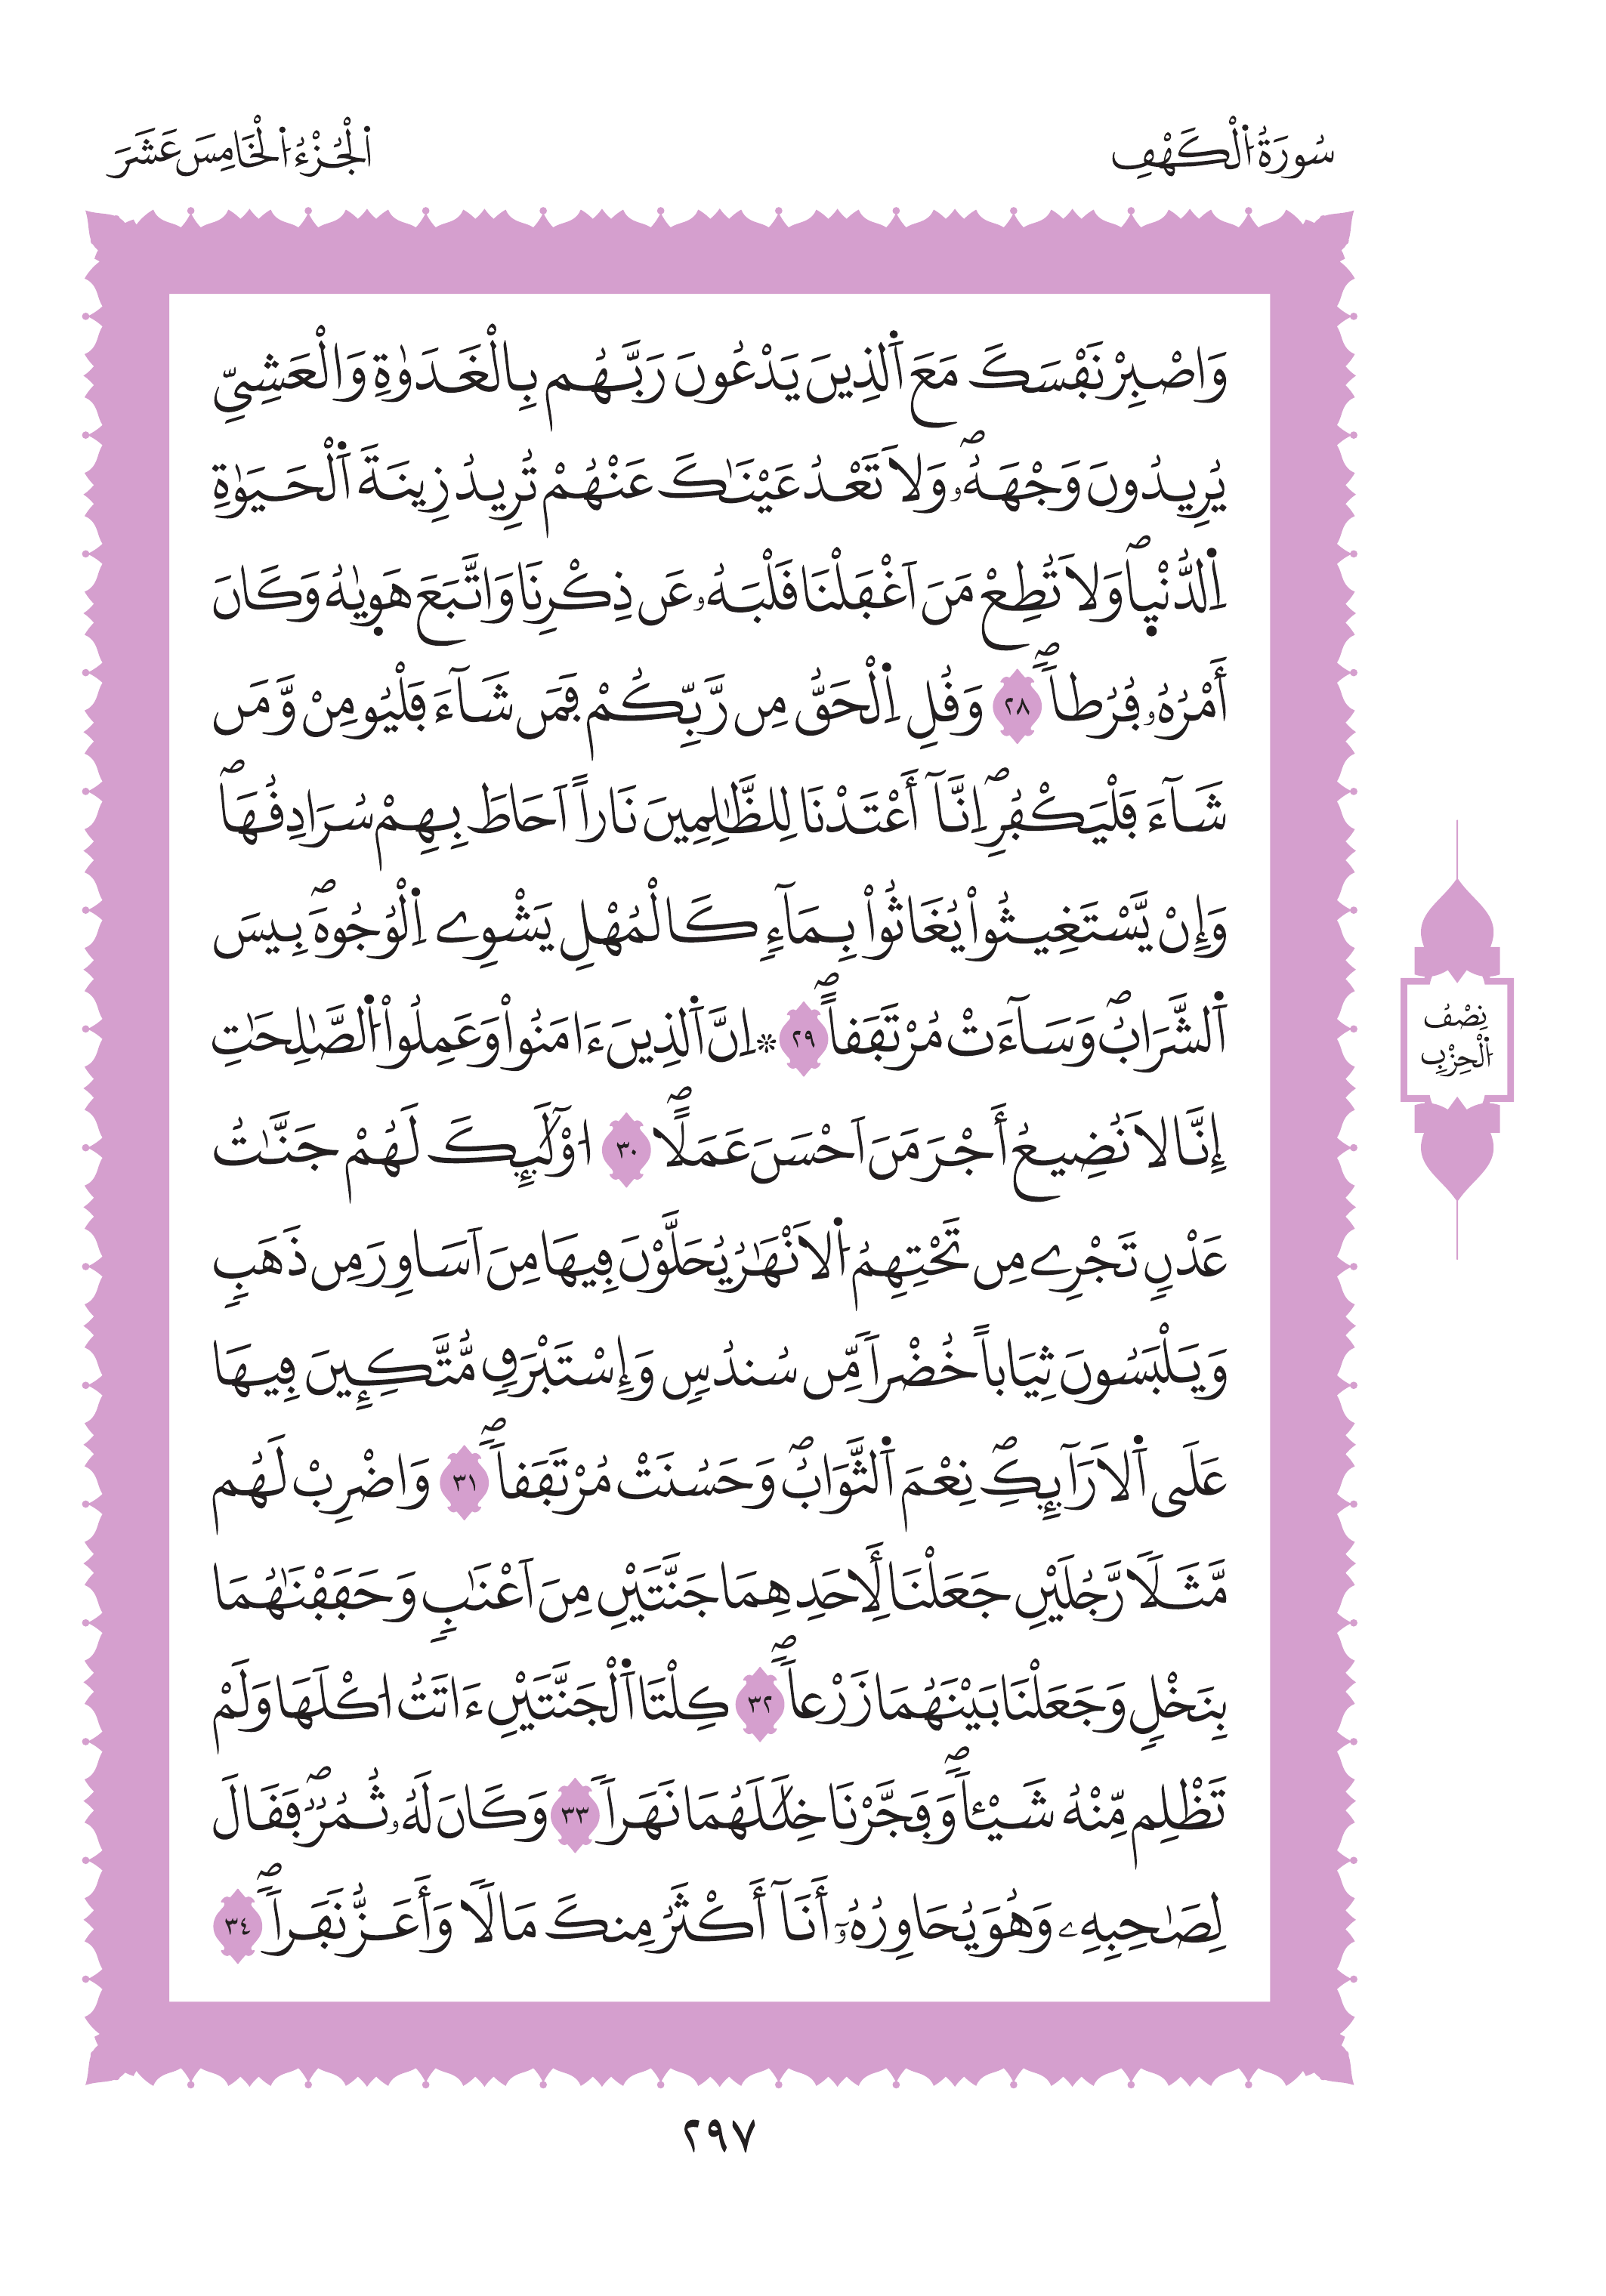 سُورَةُ اُ۬لْكَهْفِ
اَ۬لْجُزْءُ اُ۬لْخَامِسَ عَشَرَ
وَاصْبِرْ نَفْسَكَ مَعَ اَ۬لذِينَ يَدْعُونَ رَبَّهُم بِالْغَدَوٰةِ وَالْعَشِيِّ
يُرِيدُونَ وَجْهَهُۥۖ وَلَا تَعْدُ عَيْنَٰكَ عَنْهُمْ تُرِيدُ زِينَةَ اَ۬لْحَيَوٰةِ
اِ۬لدُّنْي۪اۖ وَلَا تُطِعْ مَنَ اَغْفَلْنَا قَلْبَهُۥ عَن ذِكْرِنَا وَاتَّبَعَ هَو۪يٰهُ وَكَانَ
أَمْرُهُۥ فُرُطاٗۖ ٢٨ وَقُلِ اِ۬لْحَقُّ مِن رَّبِّكُمْ فَمَن شَآءَ فَلْيُومِنْ وَّمَن
شَآءَ فَلْيَكْفُرِۖ اِنَّآ أَعْتَدْنَا لِلظَّٰلِمِينَ نَاراً اَحَاطَ بِهِمْ سُرَادِقُهَاۖ
وَإِنْ يَّسْتَغِيثُواْ يُغَاثُواْ بِمَآءٖ كَالْمُهْلِ يَشْوِے اِ۬لْوُجُوهَۖ بِيسَ
اَ۬لشَّرَابُۖ وَسَآءَتْ مُرْتَفَقاًۖ ٢٩ ۞ اِنَّ اَ۬لذِينَ ءَامَنُواْ وَعَمِلُواْ اُ۬لصَّٰلِحَٰتِ
إِنَّا لَا نُضِيعُ أَجْرَ مَنَ اَحْسَنَ عَمَلاًۖ ٣٠ ا۟وْلَٰٓئِكَ لَهُمْ جَنَّٰتُ
عَدْنٖ تَجْرِے مِن تَحْتِهِمُ اُ۬لَانْهَٰرُ يُحَلَّوْنَ فِيهَا مِنَ اَسَاوِرَ مِن ذَهَبٖ
وَيَلْبَسُونَ ثِيَاباً خُضْراٗ مِّن سُندُسٖ وَإِسْتَبْرَقٖ مُّتَّكِـِٕينَ فِيهَا
عَلَى اَ۬لَارَآئِكِۖ نِعْمَ اَ۬لثَّوَابُۖ وَحَسُنَتْ مُرْتَفَقاٗۖ ٣١ وَاضْرِبْ لَهُم
مَّثَلاٗ رَّجُلَيْنِ جَعَلْنَا لِأَحَدِهِمَا جَنَّتَيْنِ مِنَ اَعْنَٰبٖ وَحَفَفْنَٰهُمَا
بِنَخْلٖ وَجَعَلْنَا بَيْنَهُمَا زَرْعاٗۖ ٣٢ كِلْتَا اَ۬لْجَنَّتَيْنِ ءَاتَتُ ا۟كْلَهَا وَلَمْ
تَظْلِم مِّنْهُ شَيْـٔاٗۖ وَفَجَّرْنَا خِلَٰلَهُمَا نَهَراٗ ٣٣ وَكَانَ لَهُۥ ثُمُرٞۖ فَقَالَ
لِصَٰحِبِهِۦ وَهُوَ يُحَاوِرُهُۥٓ أَنَآ أَكْثَرُ مِنكَ مَالاٗ وَأَعَزُّ نَفَراٗۖ ٣٤
نِصْفُ
اُ۬لْحِزْبِ
٢٩٧